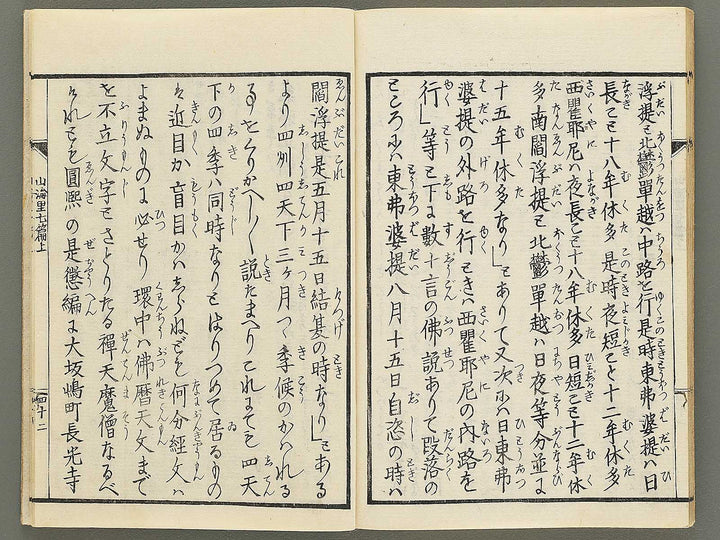 浮提と北鬱單越ハ中路を行く是時東弗婆提ハ日
長と十八年休多是時夜短こと十二年休多
西瞿耶尼ハ夜長こと十八年休多日短こと十二年休
多南閻浮提と北鬱單越ハ日夜等分並に
十五年休多なり」とありて又次ニハ日東弗
婆提の外路を行ときハ西瞿耶尼の内路を
行」等と下に数十言の佛説ありて段落の
ところにハ東弗婆提八月十五日自恣の時ハ
閻浮提是五月十五日結夏の時なり」とある
より四州四天下三ヶ月つゝ季候のかハれる
事をくりかへしく説たまへりこれにても四天
下の四季ハ同時なりとはりつめて居るもの
ハ近目か盲目かハしらねども何分経文ハ
よまぬものに必せり環中ハ佛暦天文まで
を不立文字とさとりたる禅天魔僧なるべ
けれども圓熈の是懲編に大坂嶋町長光寺
山海里七篇上
四十二